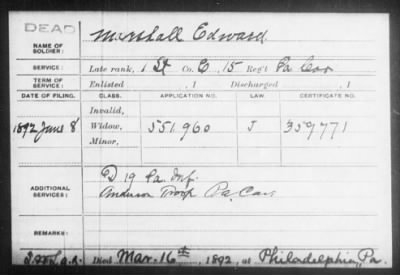 DEAD
NAME OF SOLDIER: Marshall Edward
SERVICE: Late rank, 1 St Co. C, 15 Reg't Pa Cav
TERM OF SERVICE: Enlisted , 1 Discharged , 1
DATE OF FILING. CLASS. APPLICATION NO. CERTIFICATE NO.
Invalid,
1892 June 8 Widow, 551.960 J 359771
Minor,
ADDITIONAL SERVICES: D 19 Pa. Inf.
Anderson Troop Pa. Cav.
REMARKS:
Died Mar. 16th, 1892, at Philadelphia, Pa.